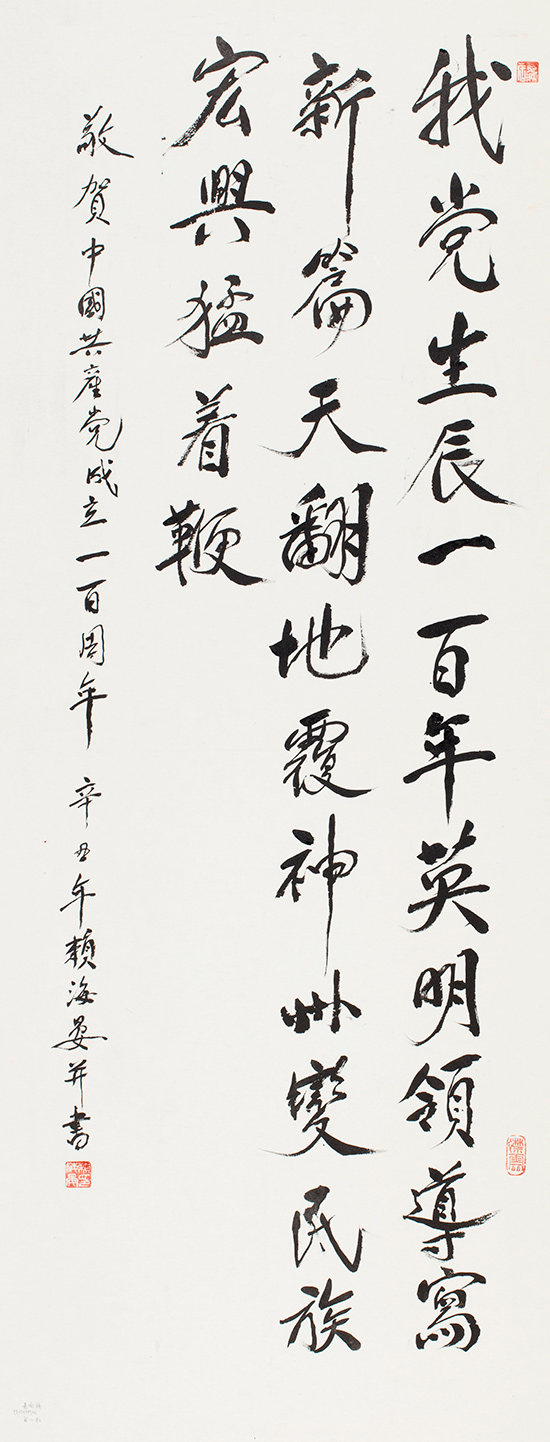 我党生辰一百年英明領導寫
新篇天翻地覆神州變民族
宏興猛着鞭
敬賀中國共產党成立一百周年 辛丑年賴海晏并書